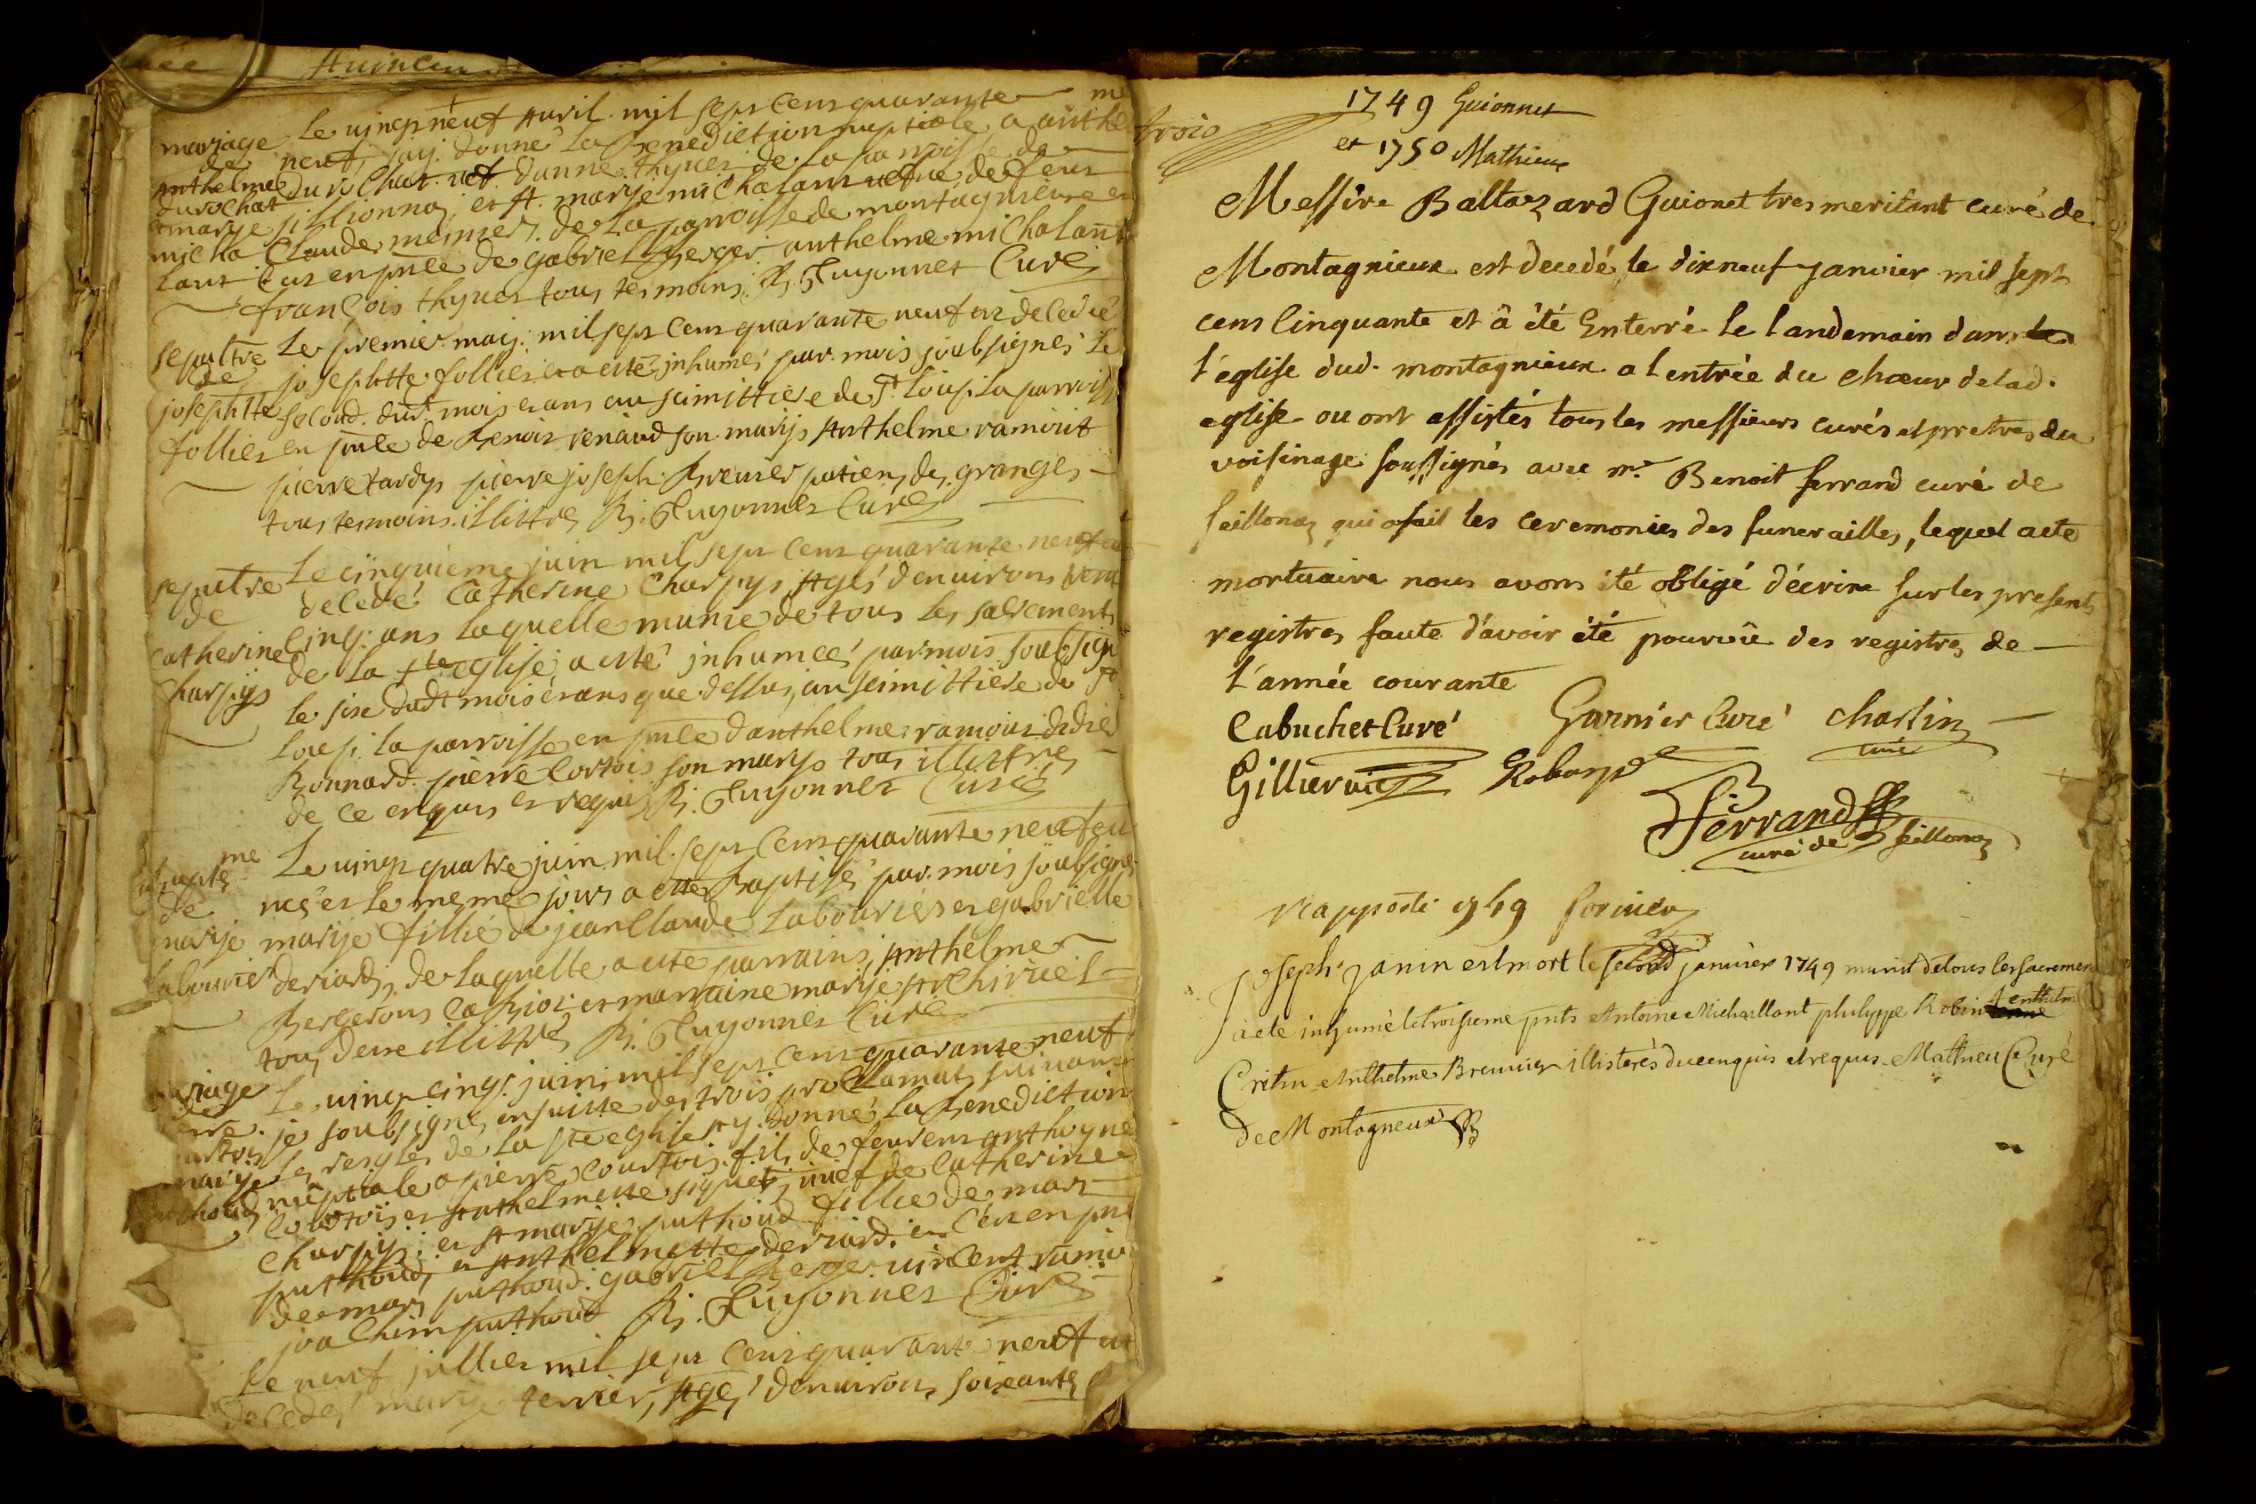 mariage Le vingt neuf Avril mil sept cens quarante
de neuf, jay donné la benediction nuptiale a anthe
Anthelme durochat vef danne thynet de la paroisse de
durochat jillionnas, et A. marye michalant vefve de feur
marye Claude meynier de La parroisse de montagnieux
micha
lant en pnce de gabriel Berger anthelme michalant
françois thynet tous tesmoins B. Guyonnet Curé
sepultre Le premier may mil sept cens quarante neuf est decedeé
de josephtte follier et a esté inhumeé par mois soubsigné le
josephtte second dudt mois et ans au simittiere de st loup la parroiss
follier en pnce de Benoit renaud son marys Anthelme ramioit
pierre tardy pierre joseph Brenier patien des granges
tous tesmoins illittre B. Guyonnet Curé
sepultre Le cinquieme juin mil sept cens quarante neuf est
de decedé Catherine Charpys Ageé denvirons
Catherine cinq ans laquelle munie de tous les sacrements
Charpys de la ste eglise a esté inhumeé par mois soubsign
le sixe dudt mois et ans que dessus, au simittiere de st
loup la parroisse en pnce danthelme ramoit didie
Bonnard pierre Cortois son marys tous illittre
de ce enquis et requis B. Guyonnet Curé
Bapteme Le vingt quatre juin mil sept cens quarante neuf est
de neé et le meme jour a esté Baptiseé par mois soubsigne
marye marye fillie de jean Claude Labourier et gabrielle
labourier deriard, de laquelle a esté parrains Anthelme
Bergerous et marraine marye
tous deux illittre B. Guyonnet Curé
mariage Le vingt cinq juin mil sept cens quarante neuf
de je soubsigné ensuitte des trois proclamats suivant
les reigles de la ste eglise ay donné la benediction
marye nuptiale a pierre Courtois fils de feu anthoyne
puthoud Courtois et Anthelmette vef de Catherine
Charpy; et A marye puthoud fillie de marc
puthoud et Anthelmette deriard. en pn
de marc puthoud gabriel Berger vincent ramio
joachim puthoud B. Guyonnet Curé
Le neuf jullier mil sept cens quarante neuf est
decedeé marye terrier, Ageé denvirons soixante
trois
1749 Guionnet
et 1750 Mathieu
Messire Baltazard Guionet tres meritant curé de
Montagnieux est decedé le dixneuf janvier mil sept
cens cinquante et â été Enterré le landemain dans
l'église dud. montagnieux a lentrée du chœur de lad.
eglise ou ont assistés tous les messieurs curés et pretres du
voisinage soussignés avec mr. Benoit ferrand curé de
seillonaz qui a fait les ceremonies des funerailles, lequel acte
mortuaire nous avons été obligé d'écrire sur les presents
registres faute d'avoir été pourvû des registres de
l'année courante
Cabuchet Curé Garnier Curé Charlin
curé
Gillier vic
Ferrand
curé de seillonaz
Rapporté 1749
Joseph janin est mort le second janvier 1749 munit de tous les sacremen
a été inhumé le troisieme pnts Antoine Michallant philippe Robin Anthelme
Cretin Anthelme Brennier illisterés de ce enquis et requis Matthieu Curé
De Montagneux